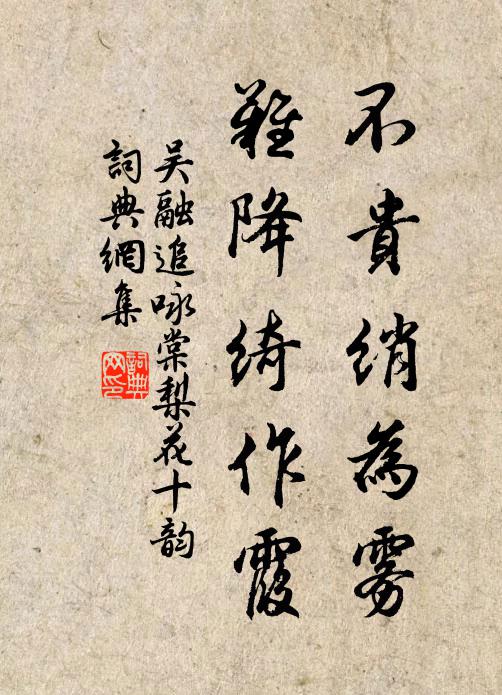 不貴綃為雾
難降綺作霞
吴融追咏棠梨花十韵
詞典網集
詞典網印